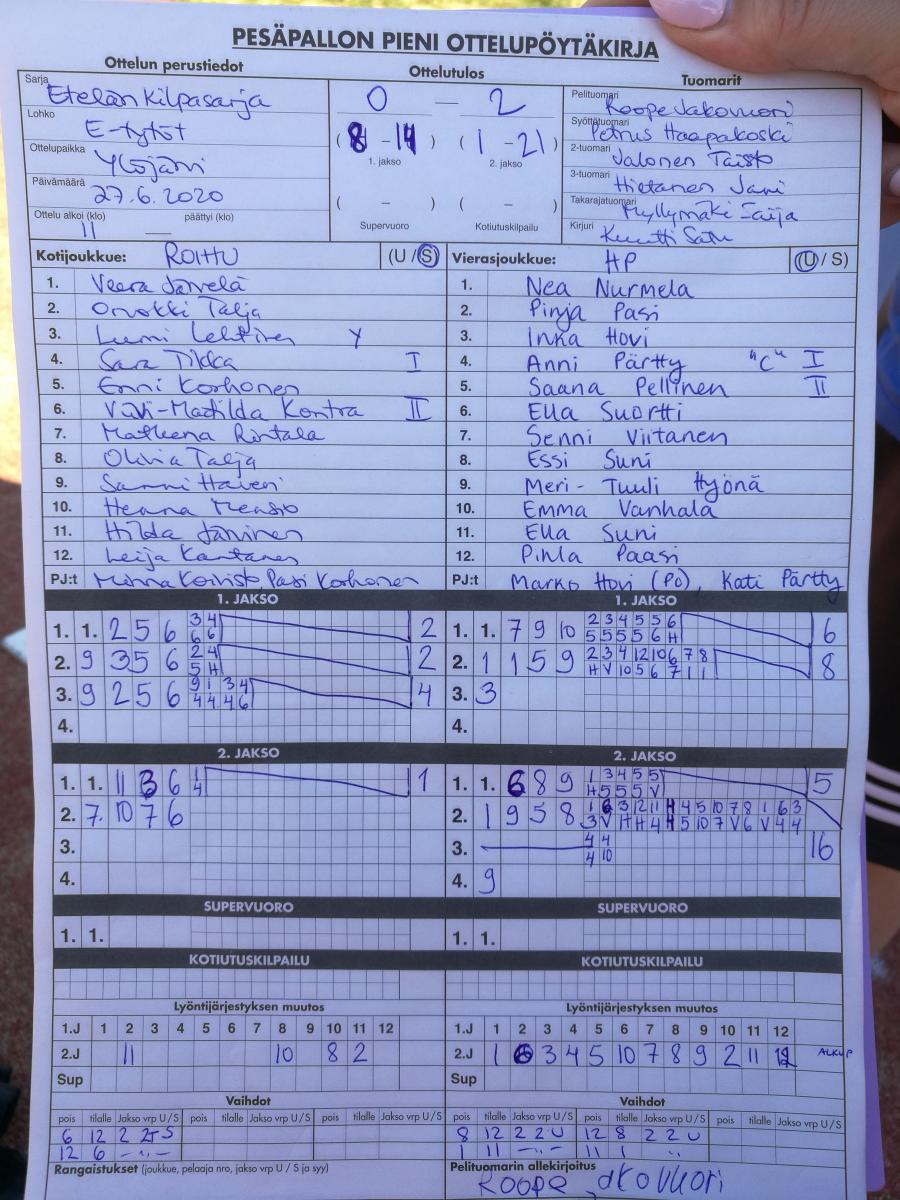 PESÄPALLON PIENI OTTELUPÖYTÄKIRJA
Ottelun perustiedot Ottelutulos Tuomarit
Sarja Etelän Kilpasarja
Lohko E-tytöt
Ottelupaikka Ylöjärvi
Päivämäärä 27.6.2020
Ottelu alkoi (klo) päättyi (klo)
11 —
0 — 2
( 8 - 14 ) ( 1 - 21 )
1. jakso 2. jakso
( - ) ( - )
Supervuoro Kotiutuskilpailu
Pelituomari Roope Jakovuori
Syöttötuomari Petrus Haapakoski
2-tuomari Jalonen Taisto
3-tuomari Hietanen Jani
Takarajatuomari Myllymäki Saija
Kirjuri Satu
Kotijoukkue: ROIHU (U / S)
1. Veera Järvelä
2. Orvokki Talja
3. Lumi Lehtinen Y
4. Sara Tikka I
5. Enni Korhonen
6. Vivi-Matilda Kontra II
7. Matleena Rintala
8. Olivia Talja
9. Sanni
10. Henna
11. Hilda Jäninen
12. Leija Kantanen
PJ:t Minna Koivisto Pasi Korhonen
Vierasjoukkue: HP (U / S)
1. Nea Nurmela
2. Pinja Pasi
3. Inka Hovi
4. Anni Pärtty "C" I
5. Saana Pellinen II
6. Ella Suortti
7. Senni Viitanen
8. Essi Suni
9. Meri-Tuuli Hyönä
10. Emma Vanhala
11. Ella Suni
12. Pihla Paasi
PJ:t Marko Hovi (PJ), Kati Pärtty
1. JAKSO
1. 1. 2 5 6 3 4 2
6 6
2. 9 3 5 6 2 4 2
5 H
3. 9 2 5 6 9 1 3 4 4
4 4 4 6
4.
1. JAKSO
1. 1. 7 9 10 2 3 4 5 5 6 6
5 5 5 5 6 H
2. 1 1 5 9 2 3 4 12 10 6 7 8 8
H V 10 5 6 7 1 1
3. 3
4.
2. JAKSO
1. 1. 11 3 6 1 1
4
2. 7. 10 7 6
3.
4.
2. JAKSO
1. 1. 6 8 9 1 3 4 5 5 5
H 5 5 5 V
2. 1 9 5 8 1 6 3 12 11 4 4 5 10 7 8 1 6 3
3 V H H 4 4 5 10 7 V 6 V 4 4
3. 4 4 16
4 10
4. 9
SUPERVUORO
1. 1.
SUPERVUORO
1. 1.
KOTIUTUSKILPAILU
KOTIUTUSKILPAILU
Lyöntijärjestyksen muutos
1.J 1 2 3 4 5 6 7 8 9 10 11 12
2.J 11 10 8 2
Sup
Lyöntijärjestyksen muutos
1.J 1 2 3 4 5 6 7 8 9 10 11 12
2.J 1 6 3 4 5 10 7 8 9 2 11 12
Sup
Vaihdot
pois tilalle Jakso vrp U / S pois tilalle Jakso vrp U / S pois tilalle Jakso vrp U / S
6 12 2 2T S
12 6 -"-
Vaihdot
pois tilalle Jakso vrp U / S pois tilalle Jakso vrp U / S pois tilalle Jakso vrp U / S
8 12 2 2 U 12 8 2 2 U
1 11 -"- 11 1 "
Rangaistukset (joukkue, pelaaja nro, jakso vrp U / S ja syy)
Pelituomarin allekirjoitus
Roope Jakovuori